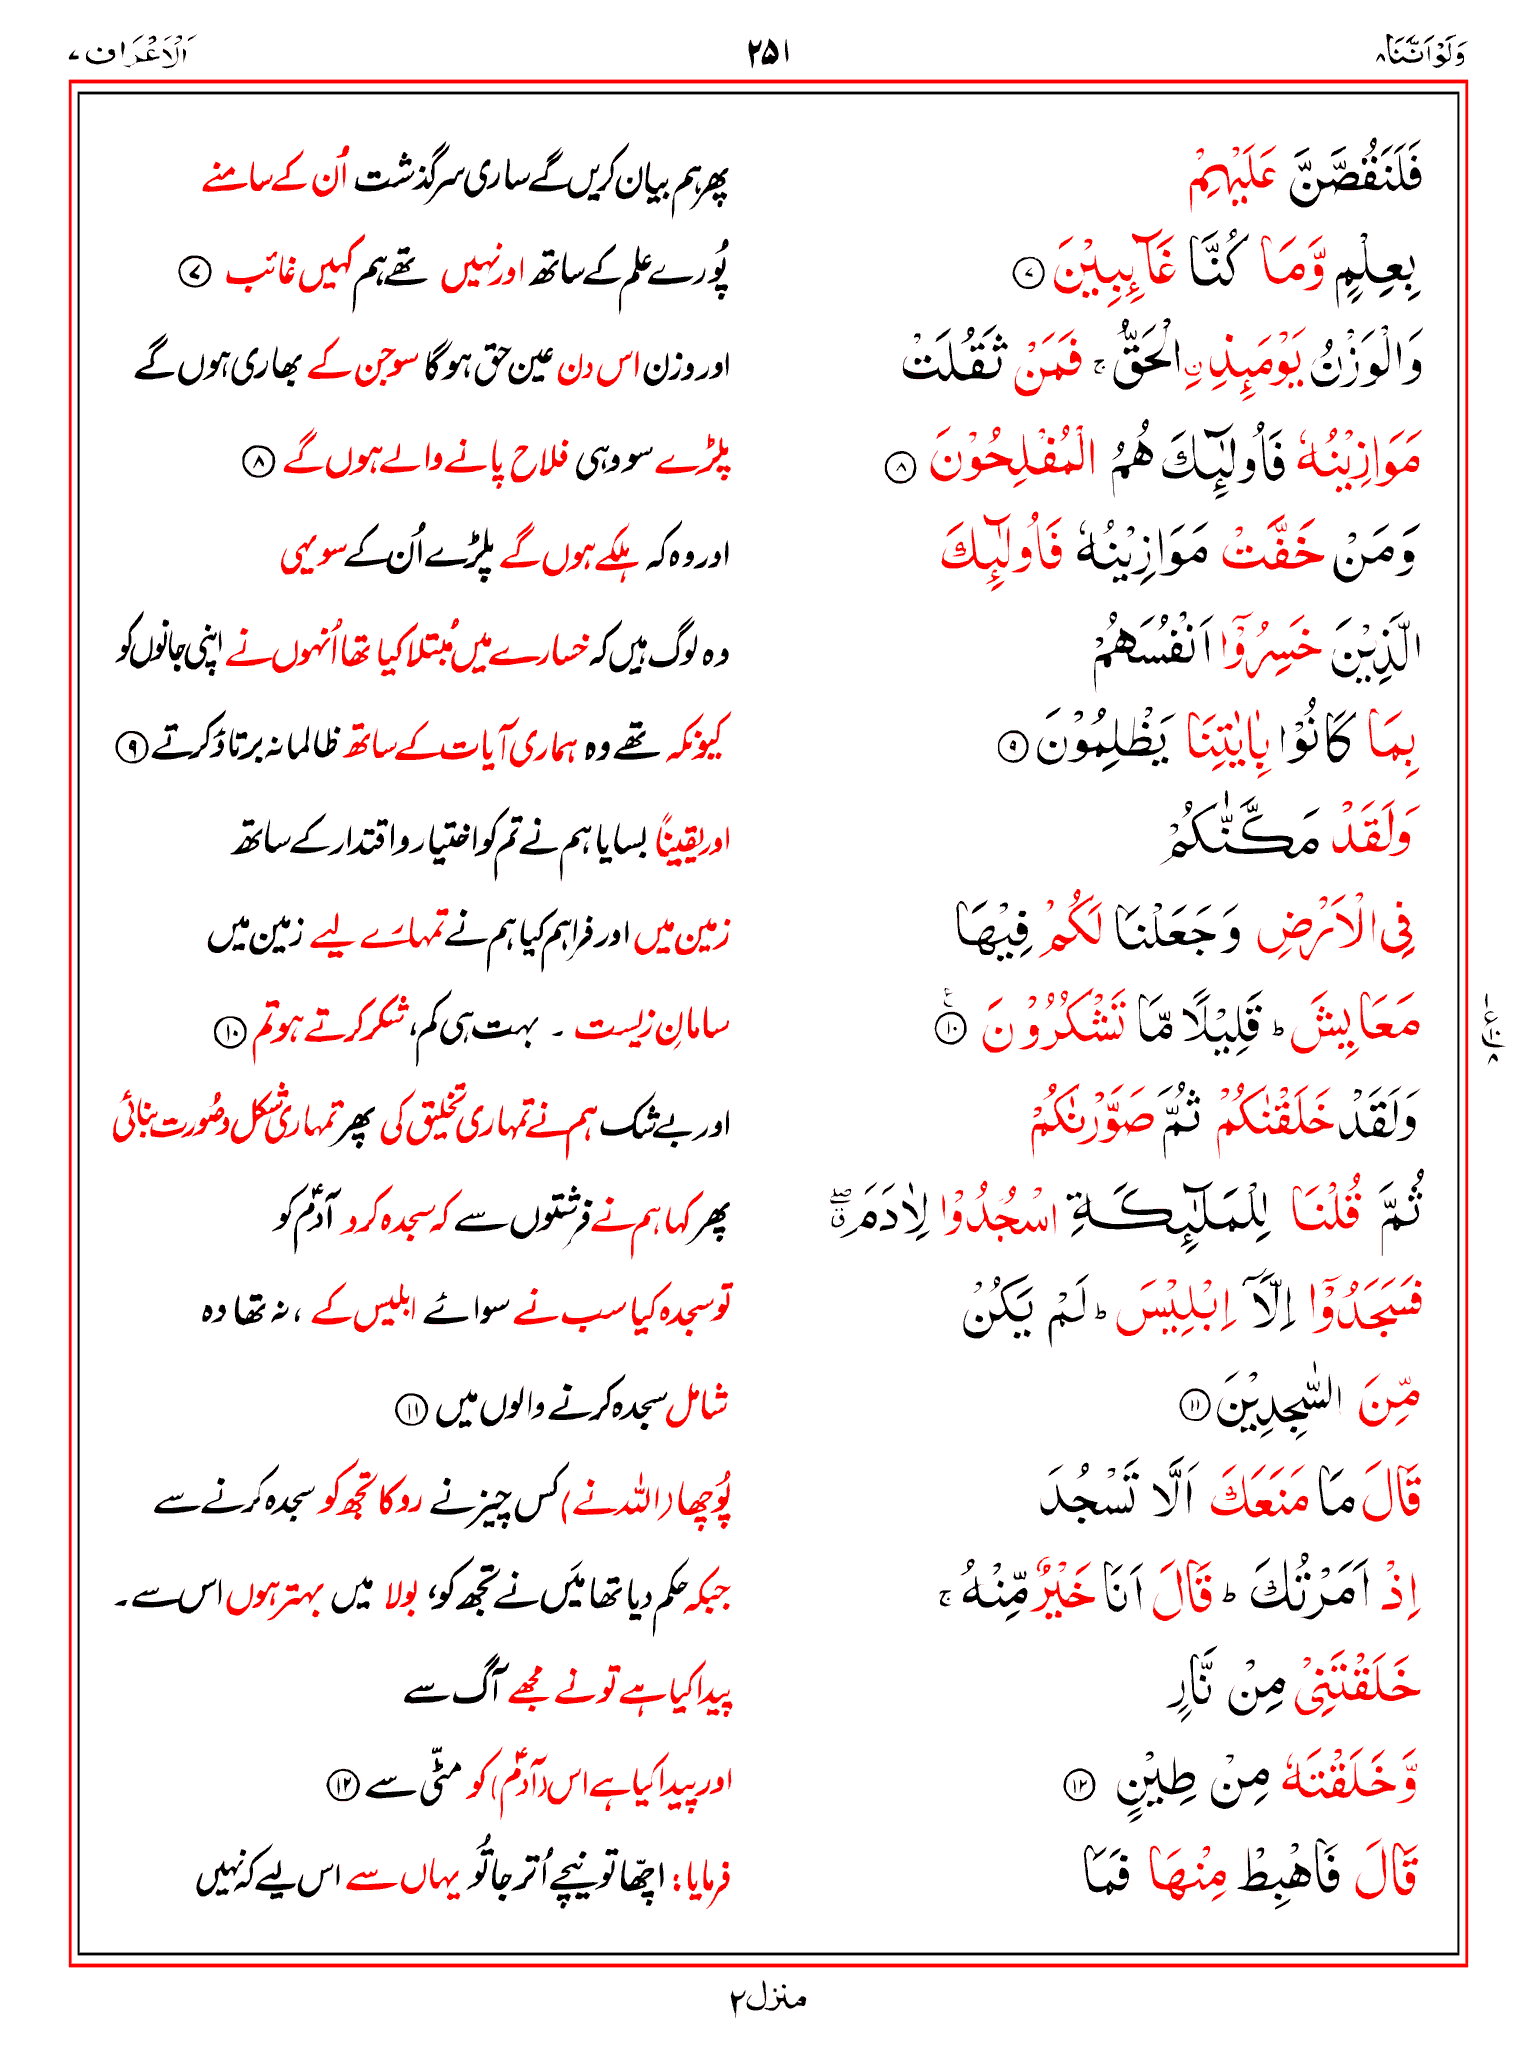 وَلَوْ اَنَّنَا ۸ ۲۵۱ اَلْاَعْرَاف ۷
فَلَنَقُصَّنَّ عَلَيْهِمْ پھر ہم بیان کریں گے ساری سرگذشت اُن کے سامنے
بِعِلْمٍ وَّمَا كُنَّا غَآئِبِيْنَ ۷ پُورے علم کے ساتھ اور نہیں تھے ہم کہیں غائب ۷
وَالْوَزْنُ يَوْمَئِذِ ِۨالْحَقُّ ۚ فَمَنْ ثَقُلَتْ اور وزن اس دن عین حق ہوگا سو جن کے بھاری ہوں گے
مَوَازِيْنُهٗ فَاُولٰٓئِكَ هُمُ الْمُفْلِحُوْنَ ۸ پلڑے سو وہی فلاح پانے والے ہوں گے ۸
وَمَنْ خَفَّتْ مَوَازِيْنُهٗ فَاُولٰٓئِكَ اور وہ کہ ہلکے ہوں گے پلڑے اُن کے سو یہی
الَّذِيْنَ خَسِرُوْٓا اَنْفُسَهُمْ وہ لوگ ہیں کہ خسارے میں مُبتلا کیا تھا اُنہوں نے اپنی جانوں کو
بِمَا كَانُوْا بِاٰيٰتِنَا يَظْلِمُوْنَ ۹ کیونکہ تھے وہ ہماری آیات کے ساتھ ظالمانہ برتاؤ کرتے ۹
وَلَقَدْ مَكَّنّٰكُمْ اور یقیناً بسایا ہم نے تم کو اختیار و اقتدار کے ساتھ
فِى الْاَرْضِ وَجَعَلْنَا لَكُمْ فِيْهَا زمین میں اور فراہم کیا ہم نے تمہارے لیے زمین میں
مَعَايِشَ ؕ قَلِيْلًا مَّا تَشْكُرُوْنَ ۱۰ سامانِ زیست ۔ بہت ہی کم، شکر کرتے ہو تم ۱۰
وَلَقَدْ خَلَقْنٰكُمْ ثُمَّ صَوَّرْنٰكُمْ اور بے شک ہم نے تمہاری تخلیق کی پھر تمہاری شکل و صُورت بنائی
ثُمَّ قُلْنَا لِلْمَلٰٓئِكَةِ اسْجُدُوْا لِاٰدَمَ ۖ پھر کہا ہم نے فرشتوں سے کہ سجدہ کرو آدمؑ کو
فَسَجَدُوْٓا اِلَّآ اِبْلِيْسَ ؕ لَمْ يَكُنْ تو سجدہ کیا سب نے سوائے ابلیس کے ، نہ تھا وہ
مِّنَ السّٰجِدِيْنَ ۱۱ شامل سجدہ کرنے والوں میں ۱۱
قَالَ مَا مَنَعَكَ اَلَّا تَسْجُدَ پُوچھا (اللہ نے) کس چیز نے روکا تجھ کو سجدہ کرنے سے
اِذْ اَمَرْتُكَ ؕ قَالَ اَنَا خَيْرٌ مِّنْهُ ۚ جبکہ حکم دیا تھا میَں نے تجھ کو، بولا میں بہتر ہوں اس سے۔
خَلَقْتَنِىْ مِنْ نَّارٍ پیدا کیا ہے تو نے مجھے آگ سے
وَّخَلَقْتَهٗ مِنْ طِيْنٍ ۱۲ اور پیدا کیا ہے اس (آدمؑ) کو مٹّی سے ۱۲
قَالَ فَاهْبِطْ مِنْهَا فَمَا فرمایا: اچّھا تو نیچے اُتر جا تُو یہاں سے اس لیے کہ نہیں
منزل ۲